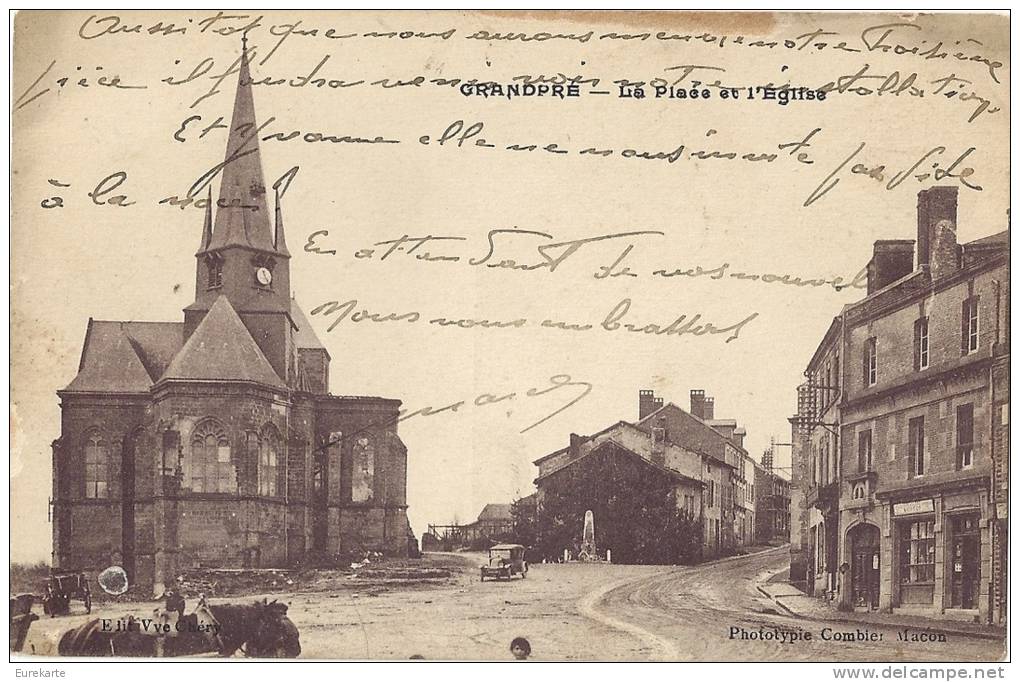 Aussitot que nous aurons meublé notre troisième
pièce il faudra venir voir notre installation
GRANDPRÉ — La Place et l'Eglise
Et Yvonne elle ne nous invite pas vite
à la noce
En attendant de vos nouvelles
Nous vous embrattons
Edit Vve Chéry
Phototypie Combier Macon
Eurekarte
www.delcampe.net